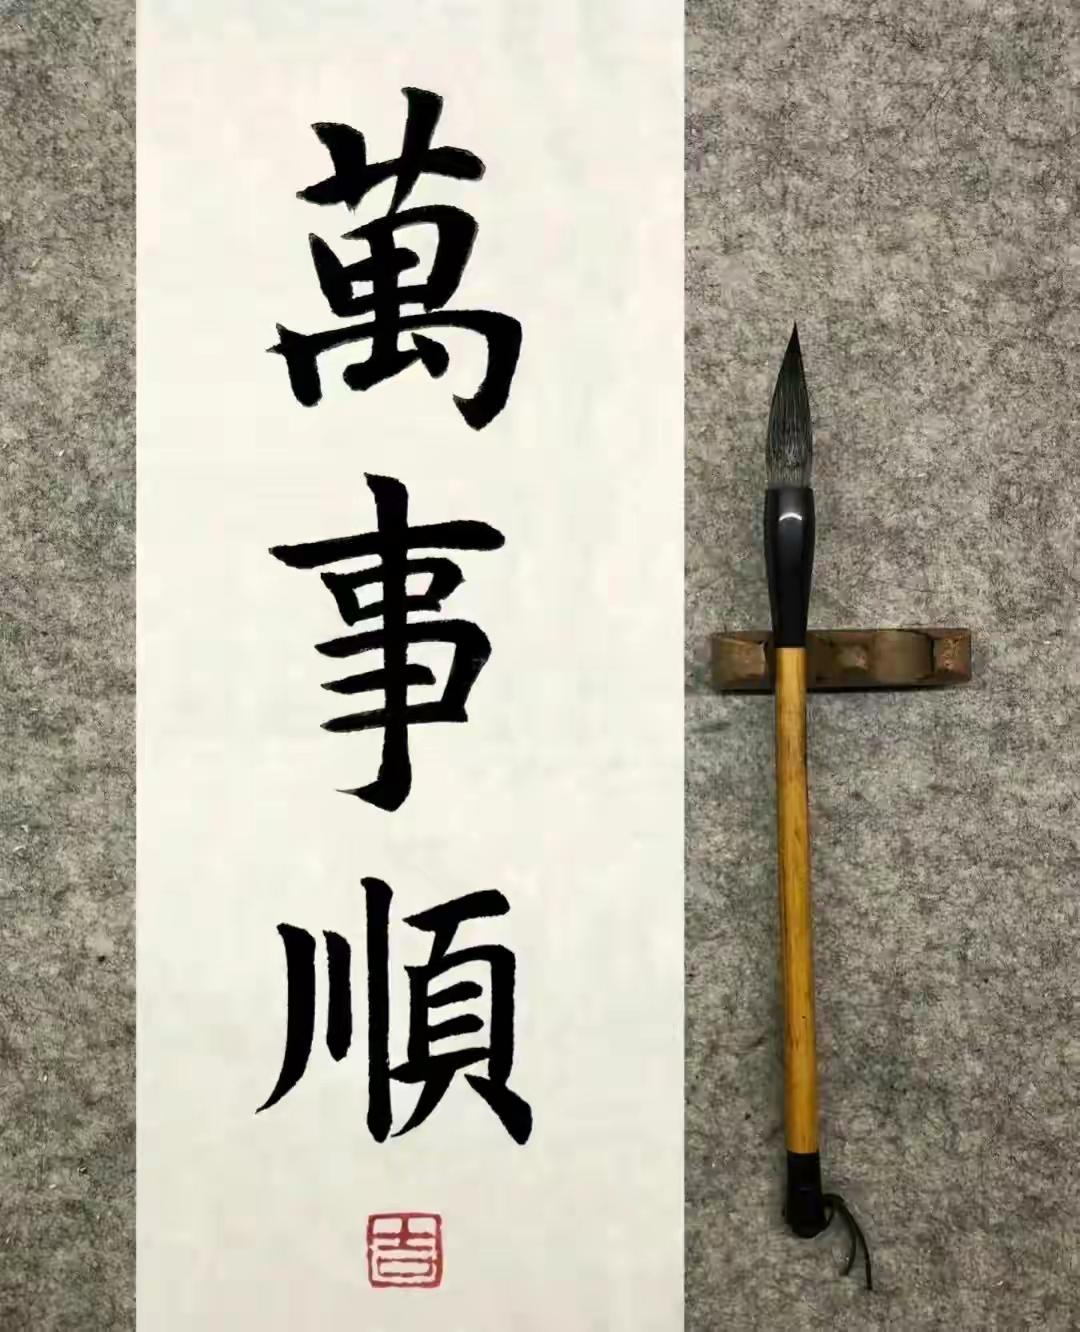 萬事順
吉